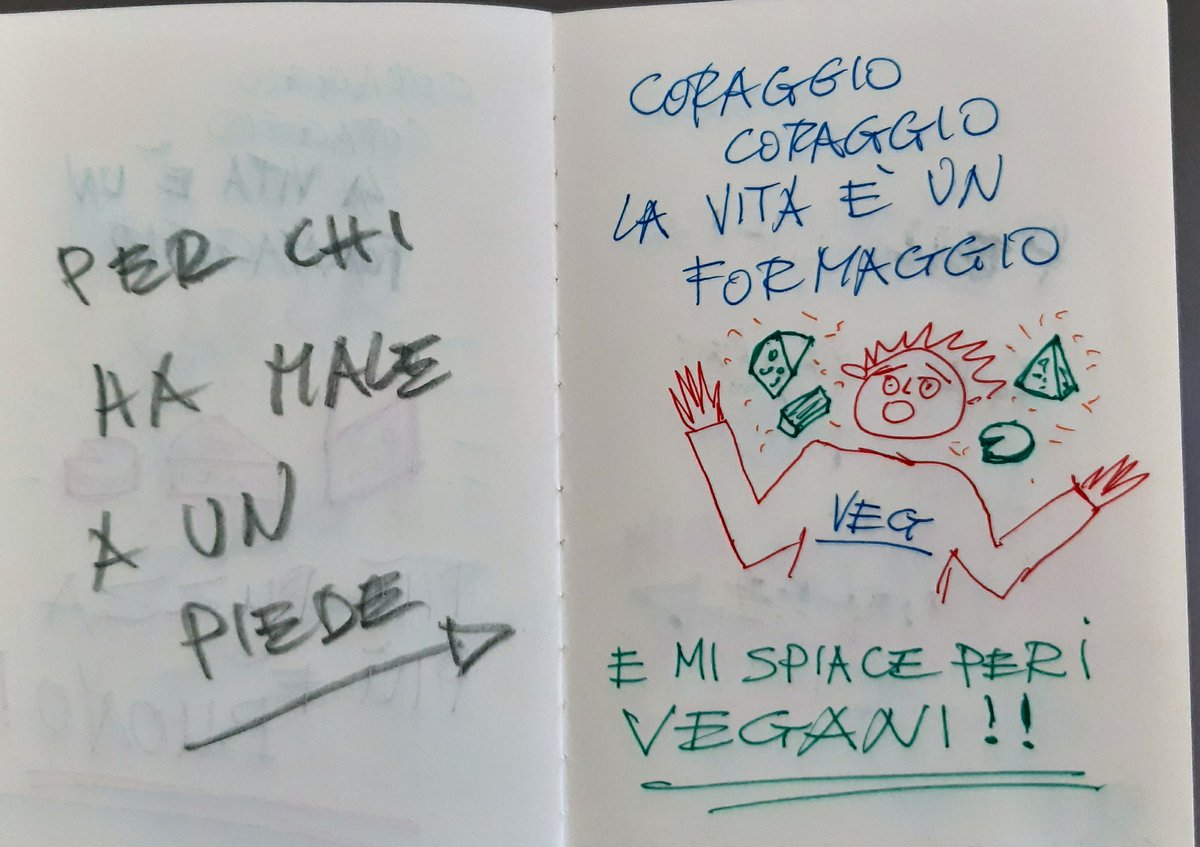 PER CHI
HA MALE
A UN
PIEDE
CORAGGIO
CORAGGIO
LA VITA È UN
FORMAGGIO
VEG
E MI SPIACE PER I
VEGANI!!